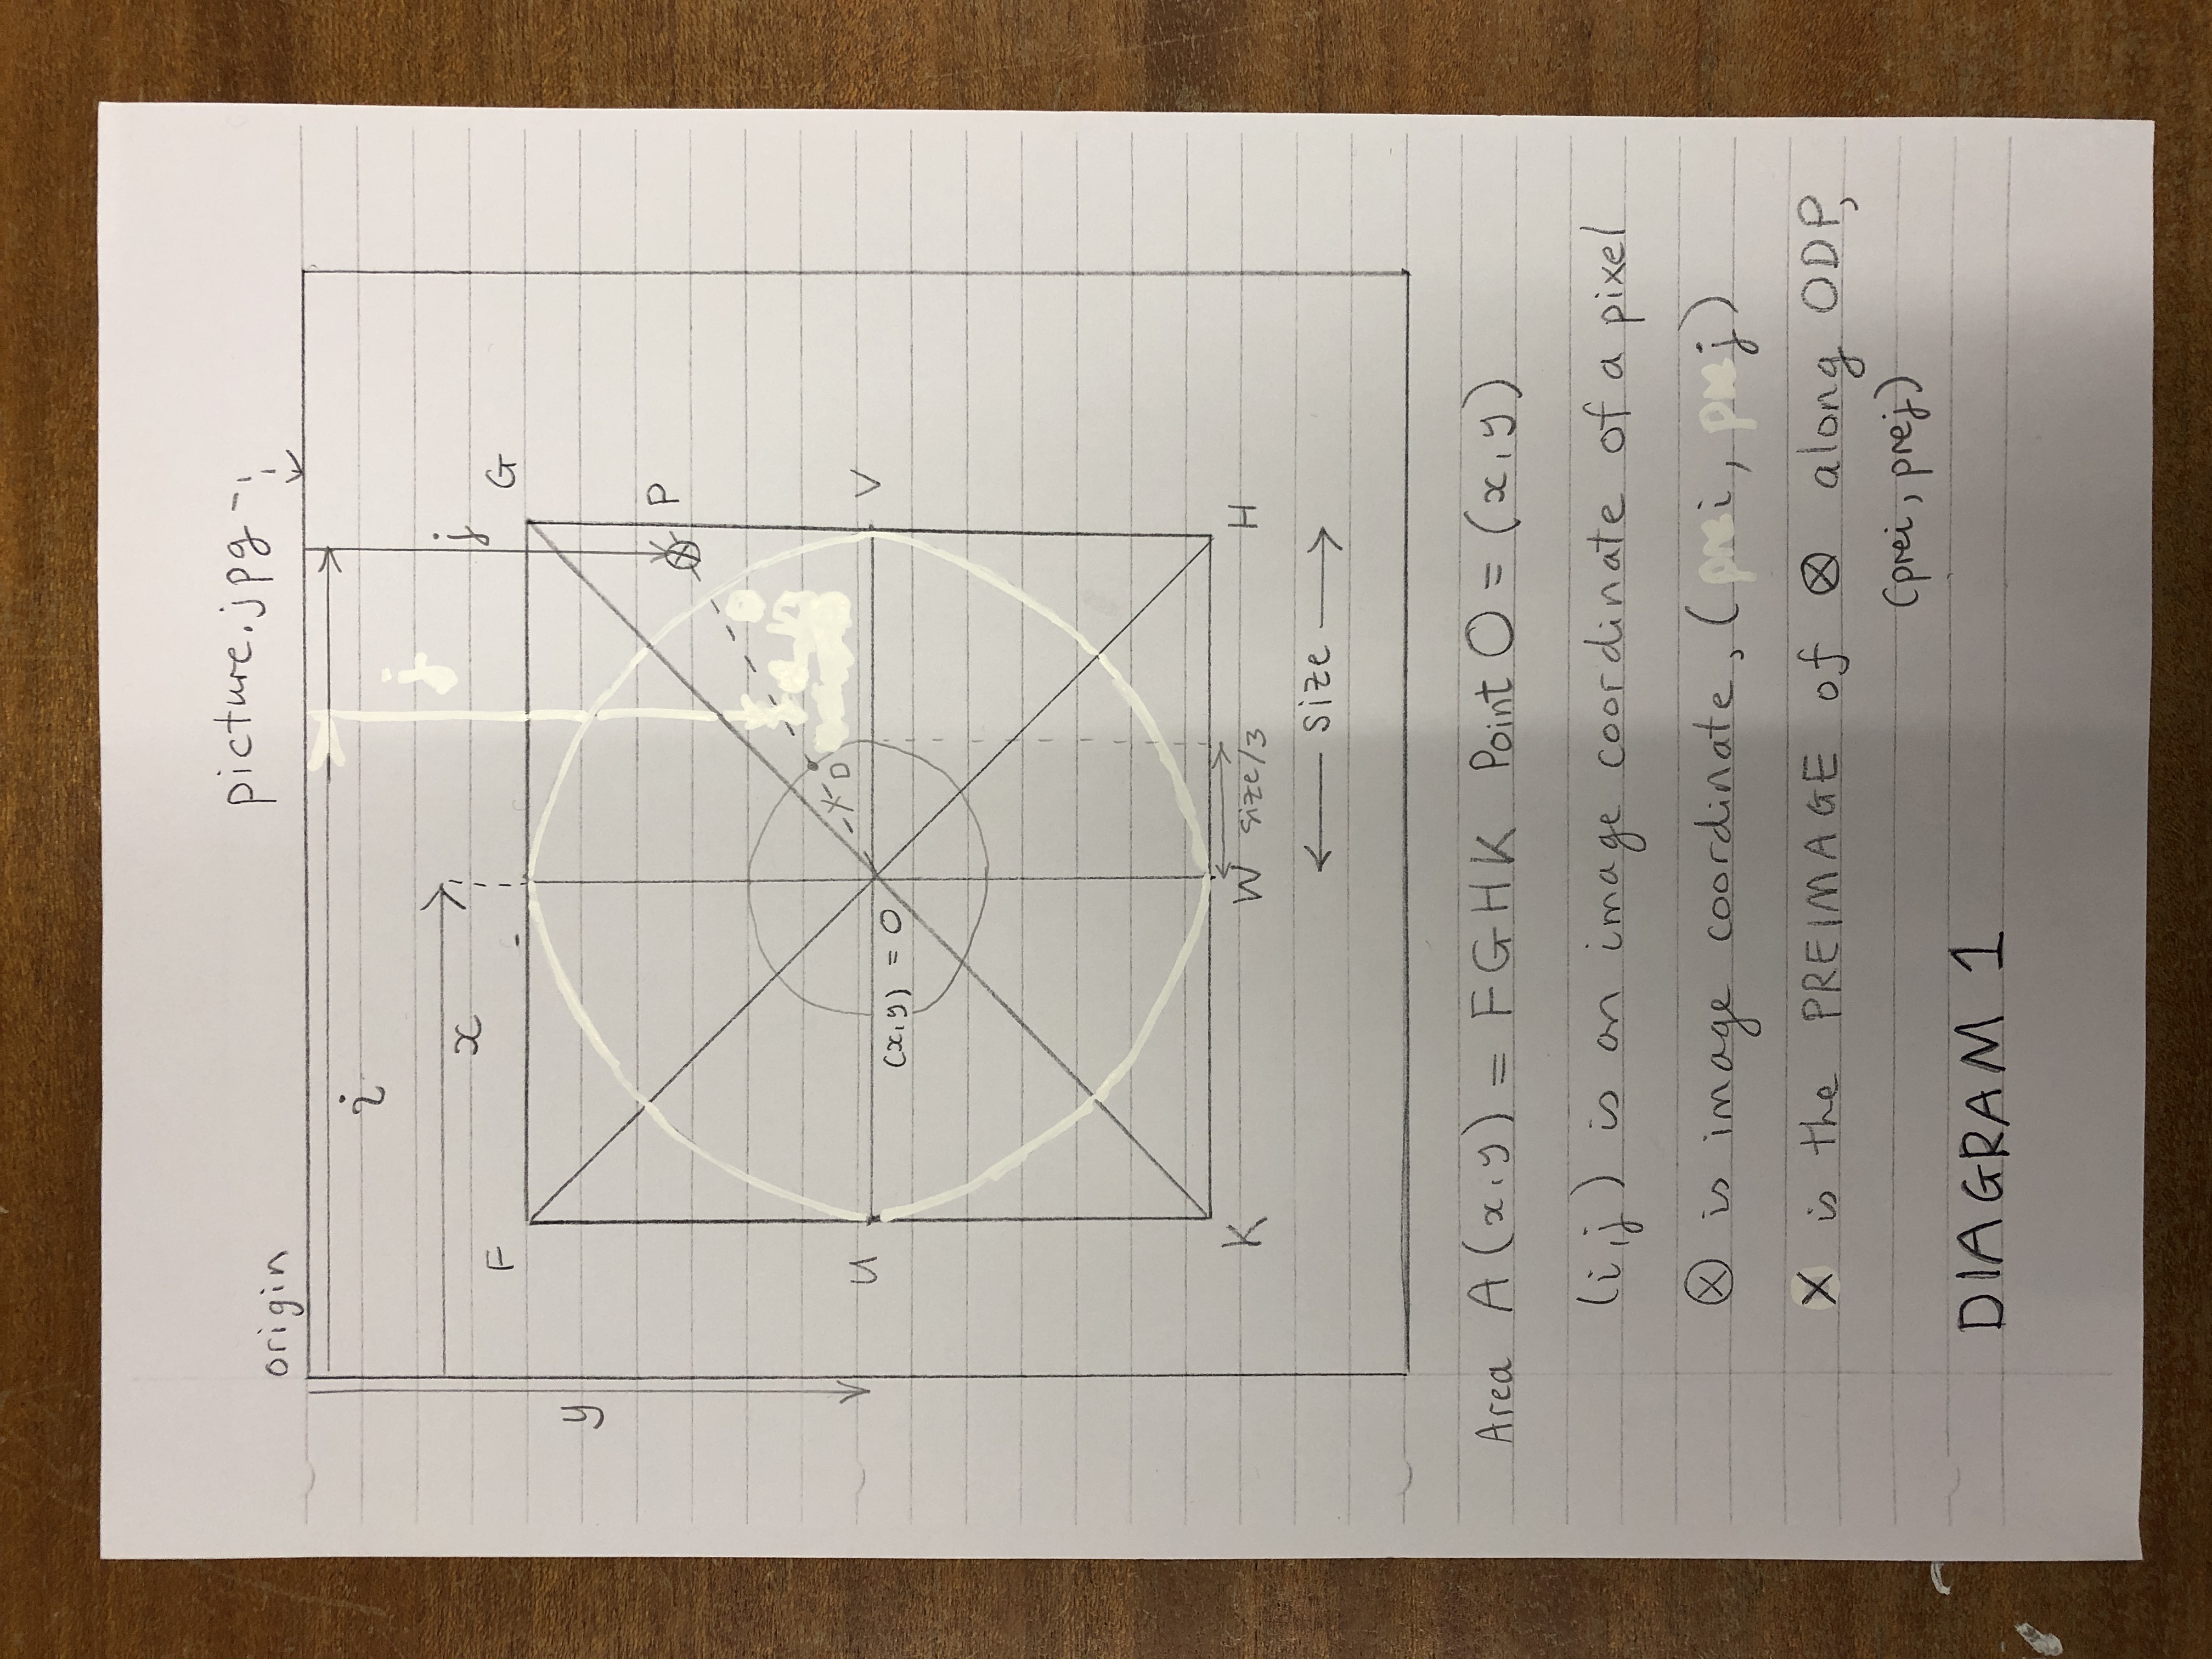 picture.jpg
origin
i
x
j
j
F
G
y
P
X D
U
V
(x,y) = O
K
W
size/3
H
size
Area A(x,y) = FGHK Point O = (x,y)
(i,j) is an image coordinate of a pixel
⊗ is image coordinate, (i, j)
X is the PREIMAGE of ⊗ along ODP,
(prei, prej)
DIAGRAM 1